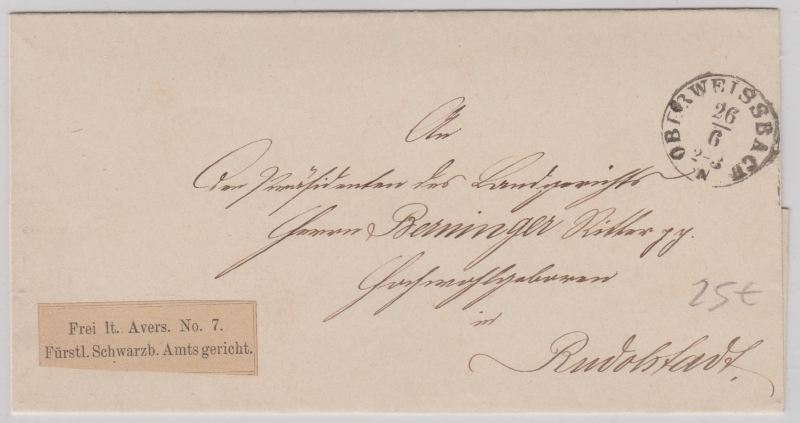 OBERWEISSBACH
26
6
2-3
N
An
den Präsidenten des Landgerichts
Herrn Berninger Ritter pp.
Hochwohlgeboren
in
Rudolstadt.
25€
Frei lt. Avers. No. 7.
Fürstl. Schwarzb. Amtsgericht.